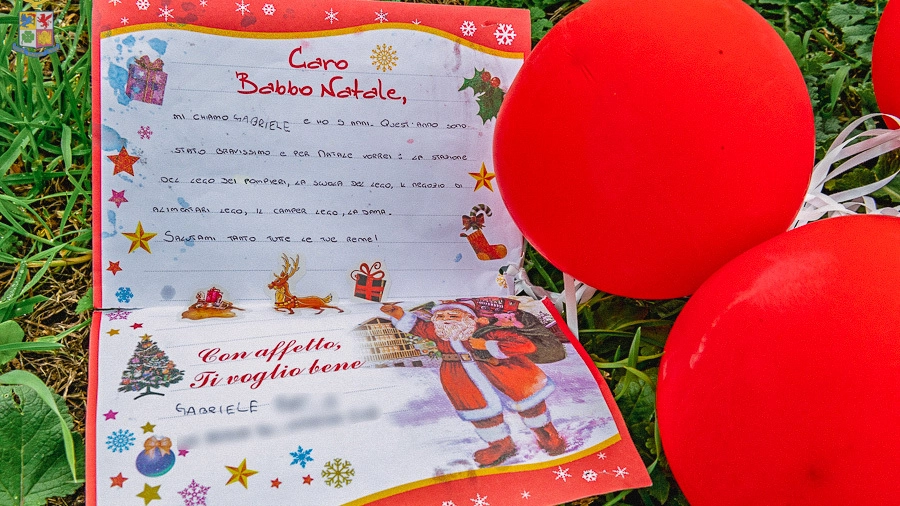 Caro
Babbo Natale,
MI CHIAMO GABRIELE E HO 5 ANNI. QUEST'ANNO SONO
STATO BRAVISSIMO E PER NATALE VORREI: LA STAZIONE
DEL LEGO DEI POMPIERI, LA SCUOLA DEL LEGO, IL NEGOZIO DI
ALIMENTARI LEGO, IL CAMPER LEGO, LA DAMA.
SALUTAMI TANTO TUTTE LE TUE RENNE!
Con affetto,
Ti voglio bene
GABRIELE